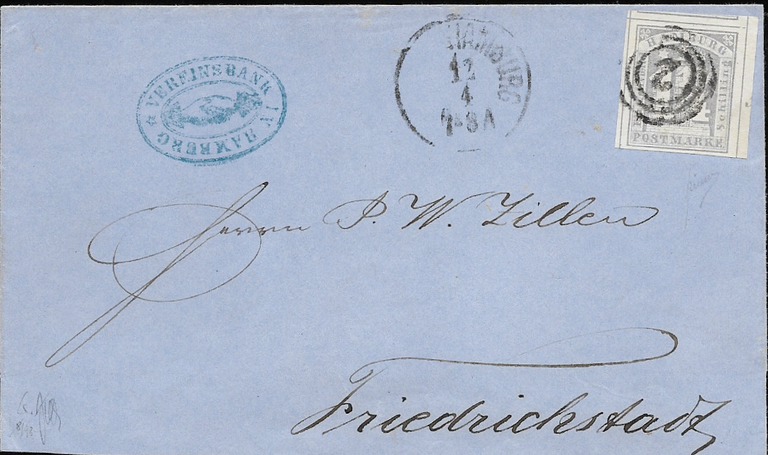 VEREINSBANK I/ HAMBURG
HAMBURG
12
4
7-8A
HAMBURG
2
POSTMARKE
Herrn P. W. Zillen
Friedrichstadt